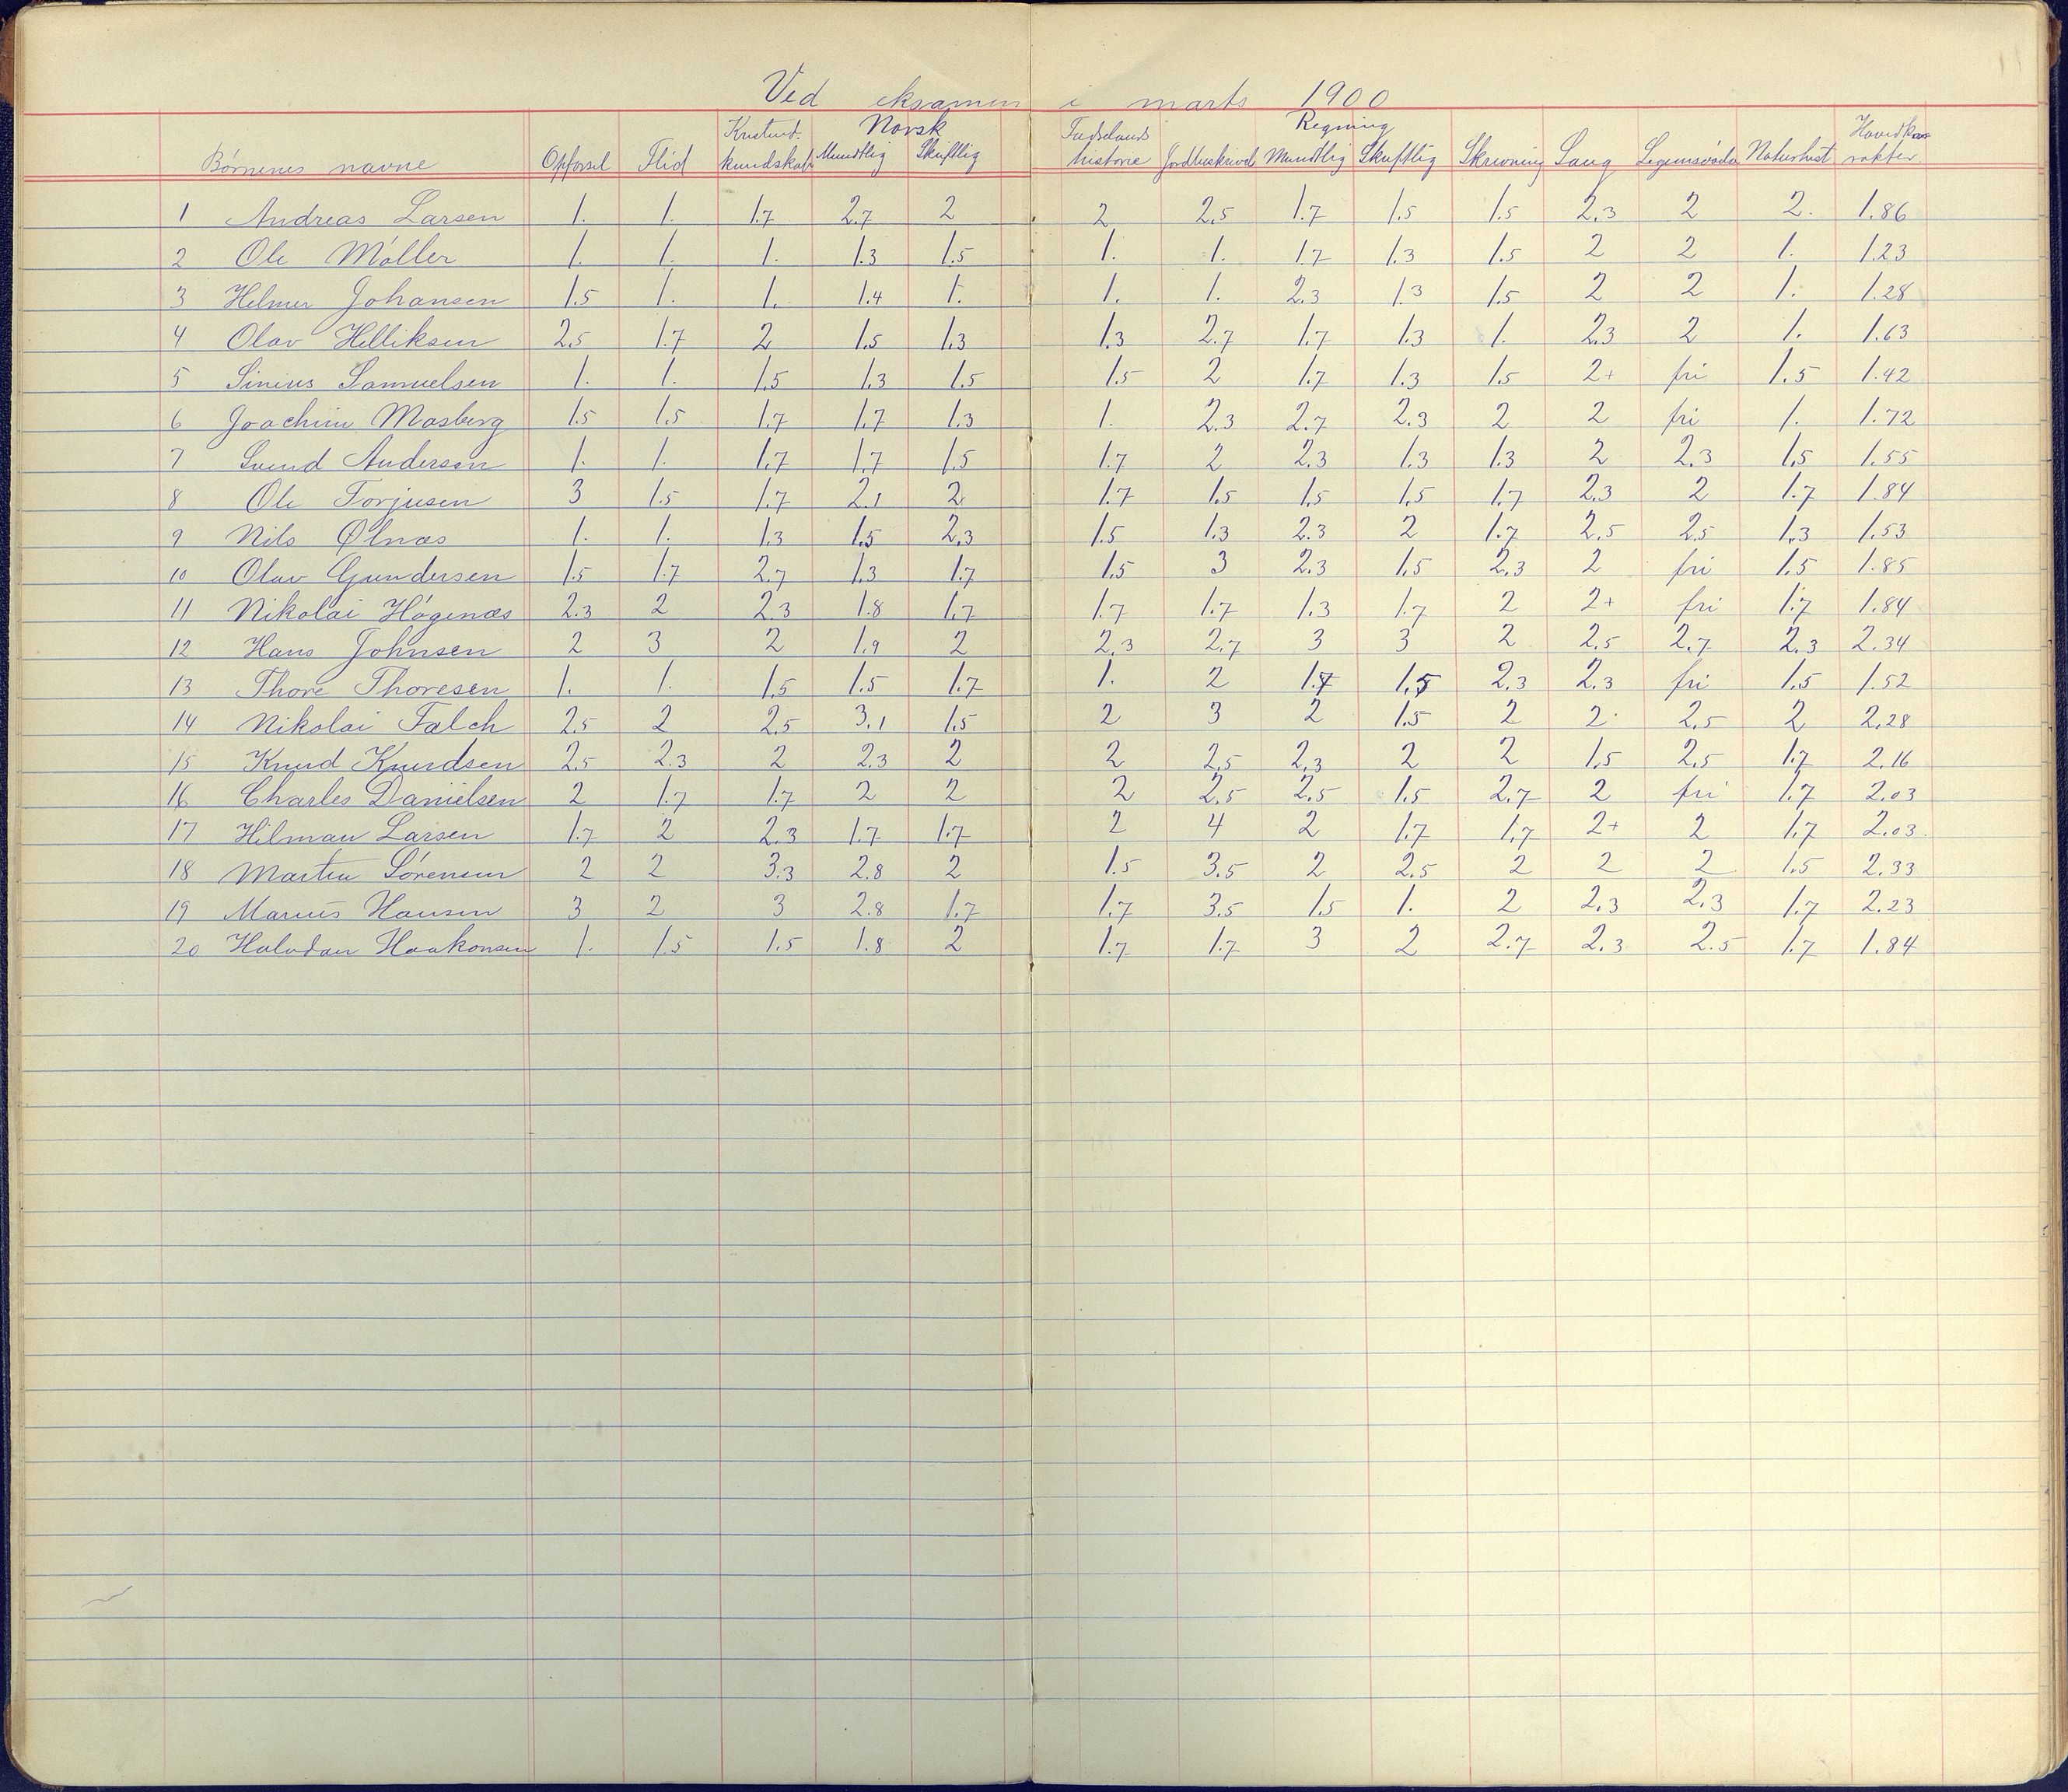 Ved eksamen i marts 1900
Børnenes navne Opførsel Flid Kristend. kundskab Norsk Mundtlig Skriftlig Fædrelands historie Jordbeskrivel Regning Mundtlig Skriftlig Skrivning Sang Legemsøvelse Naturhist Hovedkarakter.
1 Andreas Larsen 1. 1. 1.7 2.7 2 2 2.5 1.7 1.5 1.5 2.3 2 2. 1.86
2 Ole Møller 1. 1. 1. 1.3 1.5 1. 1. 1.7 1.3 1.5 2 2 1. 1.23
3 Helmer Johansen 1.5 1. 1. 1.4 1. 1. 1. 2.3 1.3 1.5 2 2 1. 1.28
4 Olav Helliksen 2.5 1.7 2 1.5 1.3 1.3 2.7 1.7 1.3 1. 2.3 2 1. 1.63
5 Sinius Samuelsen 1. 1. 1.5 1.3 1.5 1.5 2 1.7 1.3 1.5 2+ fri 1.5 1.42
6 Joachim Masberg 1.5 1.5 1.7 1.7 1.3 1. 2.3 2.7 2.3 2 2 fri 1. 1.72
7 Svend Andersen 1. 1. 1.7 1.7 1.5 1.7 2 2.3 1.3 1.3 2 2.3 1.5 1.55
8 Ole Torjusen 3 1.5 1.7 2.1 2 1.7 1.5 1.5 1.5 1.7 2.3 2 1.7 1.84
9 Nils Ølnæs 1. 1. 1.3 1.5 2.3 1.5 1.3 2.3 2 1.7 2.5 2.5 1.3 1.53
10 Olav Gundersen 1.5 1.7 2.7 1.3 1.7 1.5 3 2.3 1.5 2.3 2 fri 1.5 1.85
11 Nikolai Høgenæs 2.3 2 2.3 1.8 1.7 1.7 1.7 1.3 1.7 2 2+ fri 1.7 1.84
12 Hans Johnsen 2 3 2 1.9 2 2.3 2.7 3 3 2 2.5 2.7 2.3 2.34
13 Thore Thoresen 1. 1. 1.5 1.5 1.7 1. 2 1.7 1.5 2.3 2.3 fri 1.5 1.52
14 Nikolai Falch 2.5 2 2.5 3.1 1.5 2 3 2 1.5 2 2. 2.5 2 2.28
15 Knud Knudsen 2.5 2.3 2 2.3 2 2 2.5 2.3 2 2 1.5 2.5 1.7 2.16
16 Charles Danielsen 2 1.7 1.7 2 2 2 2.5 2.5 1.5 2.7 2 fri 1.7 2.03
17 Hilman Larsen 1.7 2 2.3 1.7 1.7 2 4 2 1.7 1.7 2+ 2 1.7 2.03.
18 Martin Sørensen 2 2 3.3 2.8 2 1.5 3.5 2 2.5 2 2 2 1.5 2.33
19 Marius Hansen 3 2 3 2.8 1.7 1.7 3.5 1.5 1. 2 2.3 2.3 1.7 2.23
20 Halvdan Haakonsen 1. 1.5 1.5 1.8 2 1.7 1.7 3 2 2.7 2.3 2.5 1.7 1.84